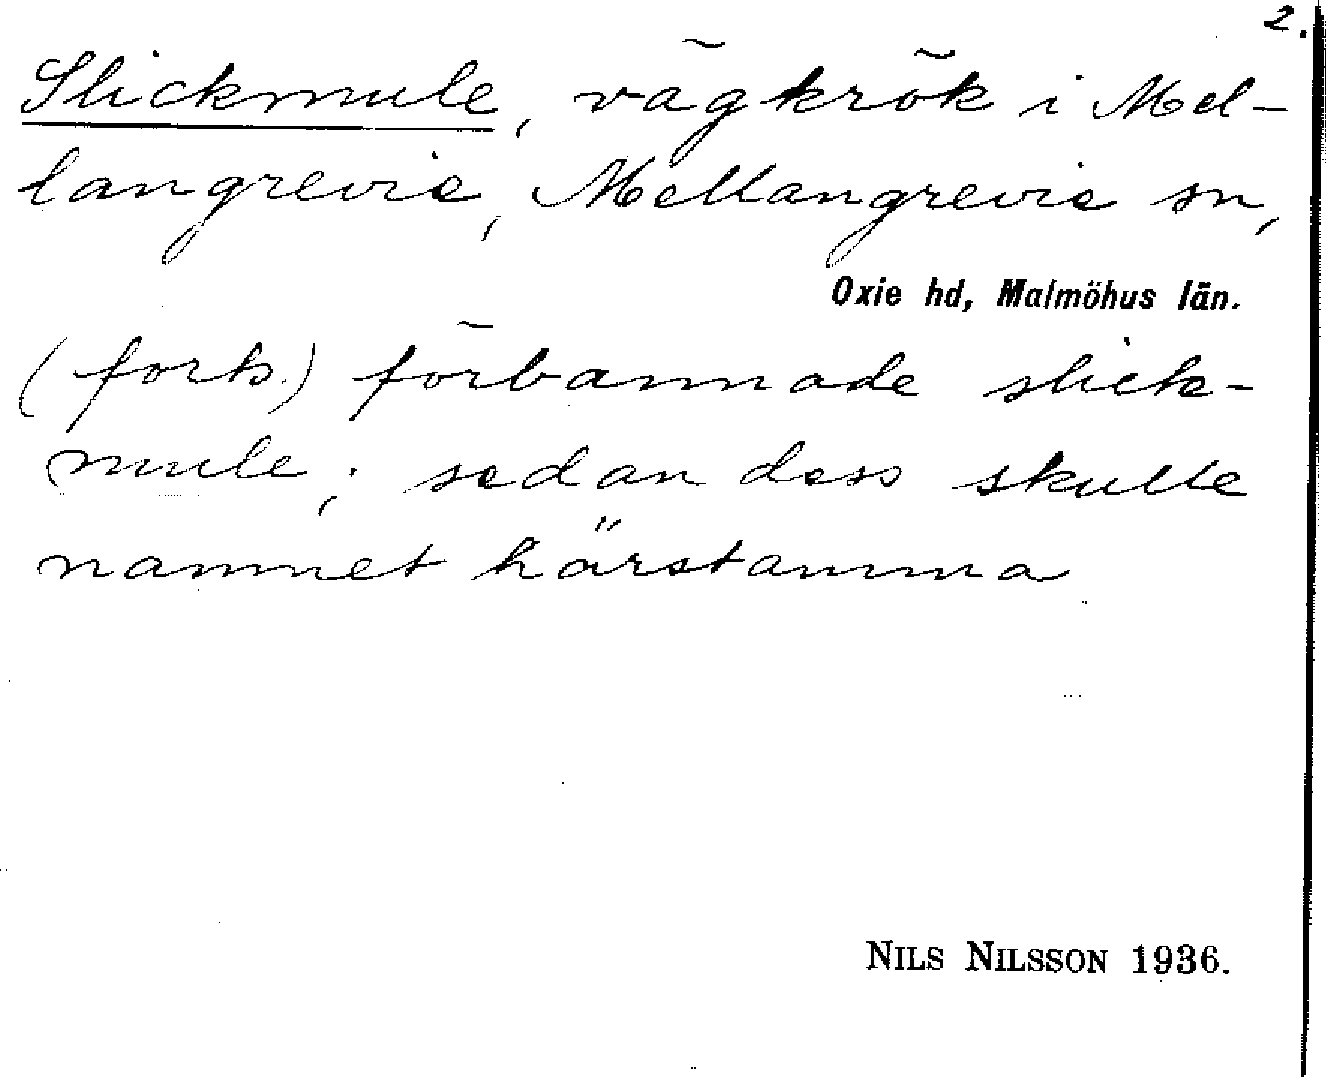 2.
Slickmule, vägkrök i Mel-
langrevie, Mellangrevie sn,
Oxie hd, Malmöhus län.
(forts.) förbannade slick-
mule; sedan dess skulle
namnet härstamma
NILS NILSSON 1936.